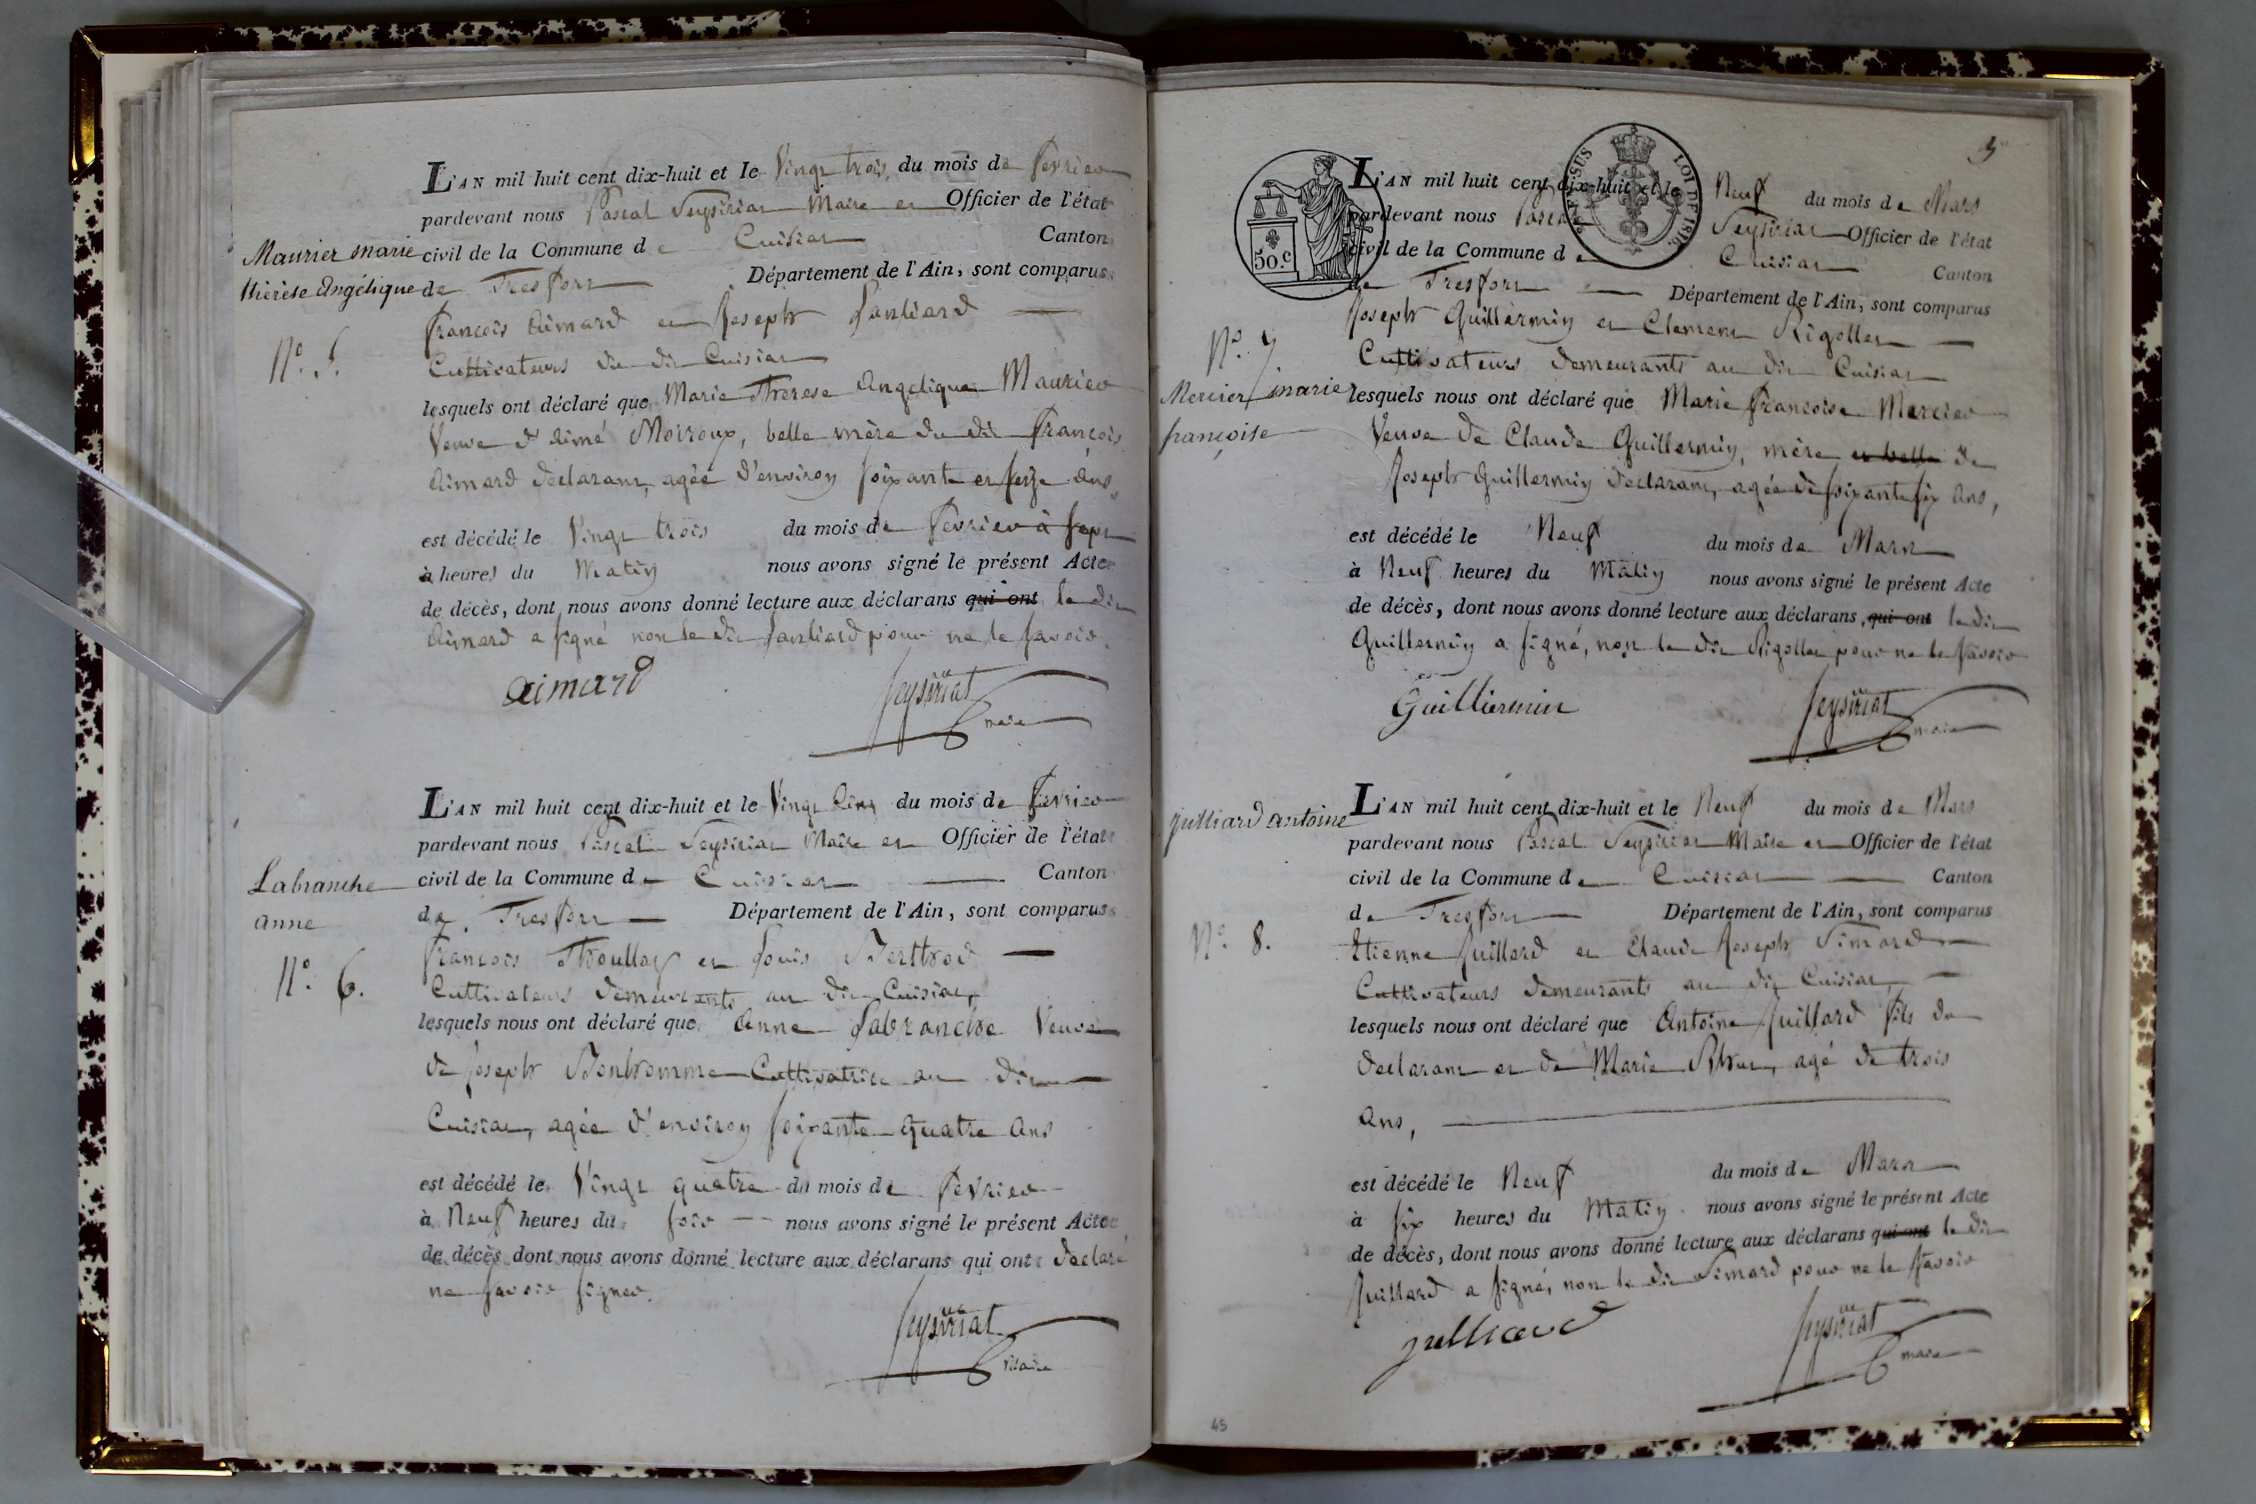 L'AN mil huit cent dix-huit et le Vingt trois du mois de fevrier
pardevant nous Pascal Seysiriat Maire et Officier de l'état
Maurier marie civil de la Commune de Cuisiat Canton
thérèse Angélique de Treffort Département de l'Ain, sont comparus
françois Aimard et Joseph
N.º 5. Cultivateurs du dit Cuisiat
lesquels ont déclaré que Marie Therese Angelique Maurier
Veuve d'Aimé Moiroux, belle mère du dit françois
Aimard declarant, agée d'environ soixante et seize ans,
est décédé le Vingt trois du mois de fevrier à sept
à heures du Matin nous avons signé le présent Acte
de décès, dont nous avons donné lecture aux déclarans qui ont le dit
Aimard a signé non le dit pour ne le savoir.
aimard Seysiriat
maire
L'AN mil huit cent dix-huit et le Vingt Cinq du mois de fevrier
pardevant nous Pascal Seysiriat Maire et Officier de l'état
Labranche civil de la Commune de Cuisiat Canton
anne de Treffort Département de l'Ain, sont comparus
françois Thoullon et Louis Berthod
N.º 6. Cultivateurs demeurants au dit Cuisiat,
lesquels nous ont déclaré que Anne Labranche Veuve
de Joseph Bonhomme Cultivatrice au dit
Cuisiat, agée d'environ soixante quatre ans
est décédé le Vingt quatre du mois de fevrier
à Neuf heures du soir nous avons signé le présent Acte
de décès dont nous avons donné lecture aux déclarans qui ont declaré
ne savoir signer.
Seysiriat
Maire
L'AN mil huit cent dix-huit et le Neuf du mois de Mars
pardevant nous Pascal Seysiriat Officier de l'état
50.c civil de la Commune de Cuisiat Canton
de Treffort Département de l'Ain, sont comparus
LOI DE
Joseph Guillermin et Clement Rigollet
N.º 7 Cultivateurs demeurants au dit Cuisiat
Mercier marie lesquels nous ont déclaré que Marie françoise Mercier
françoise Veuve de Claude Guillermin, mère et belle de
Joseph Guillermin declarant, agée de soixante six ans,
est décédé le Neuf du mois de Mars
à Neuf heures du Matin nous avons signé le présent Acte
de décès, dont nous avons donné lecture aux déclarans, qui ont le dit
Guillermin a signé, non le dit Rigollet pour ne le savoir
Guilliermin Seysiriat
maire
L'AN mil huit cent dix-huit et le Neuf du mois de Mars
Julliard antoine
pardevant nous Pascal Seysiriat Maire et Officier de l'état
civil de la Commune de Cuisiat Canton
de Treffort Département de l'Ain, sont comparus
N.º 8. Etienne Juillard et Claude Joseph Simard
Cultivateurs demeurants au dit Cuisiat
lesquels nous ont déclaré que Antoine Juillard fils du
declarant et de Marie agé de trois
ans,
est décédé le Neuf du mois de Mars
à six heures du Matin nous avons signé le présent Acte
de décès, dont nous avons donné lecture aux déclarans qui ont le dit
Juillard a signé, non le dit Simard pour ne le savoir
Julliard Seysiriat
maire
45